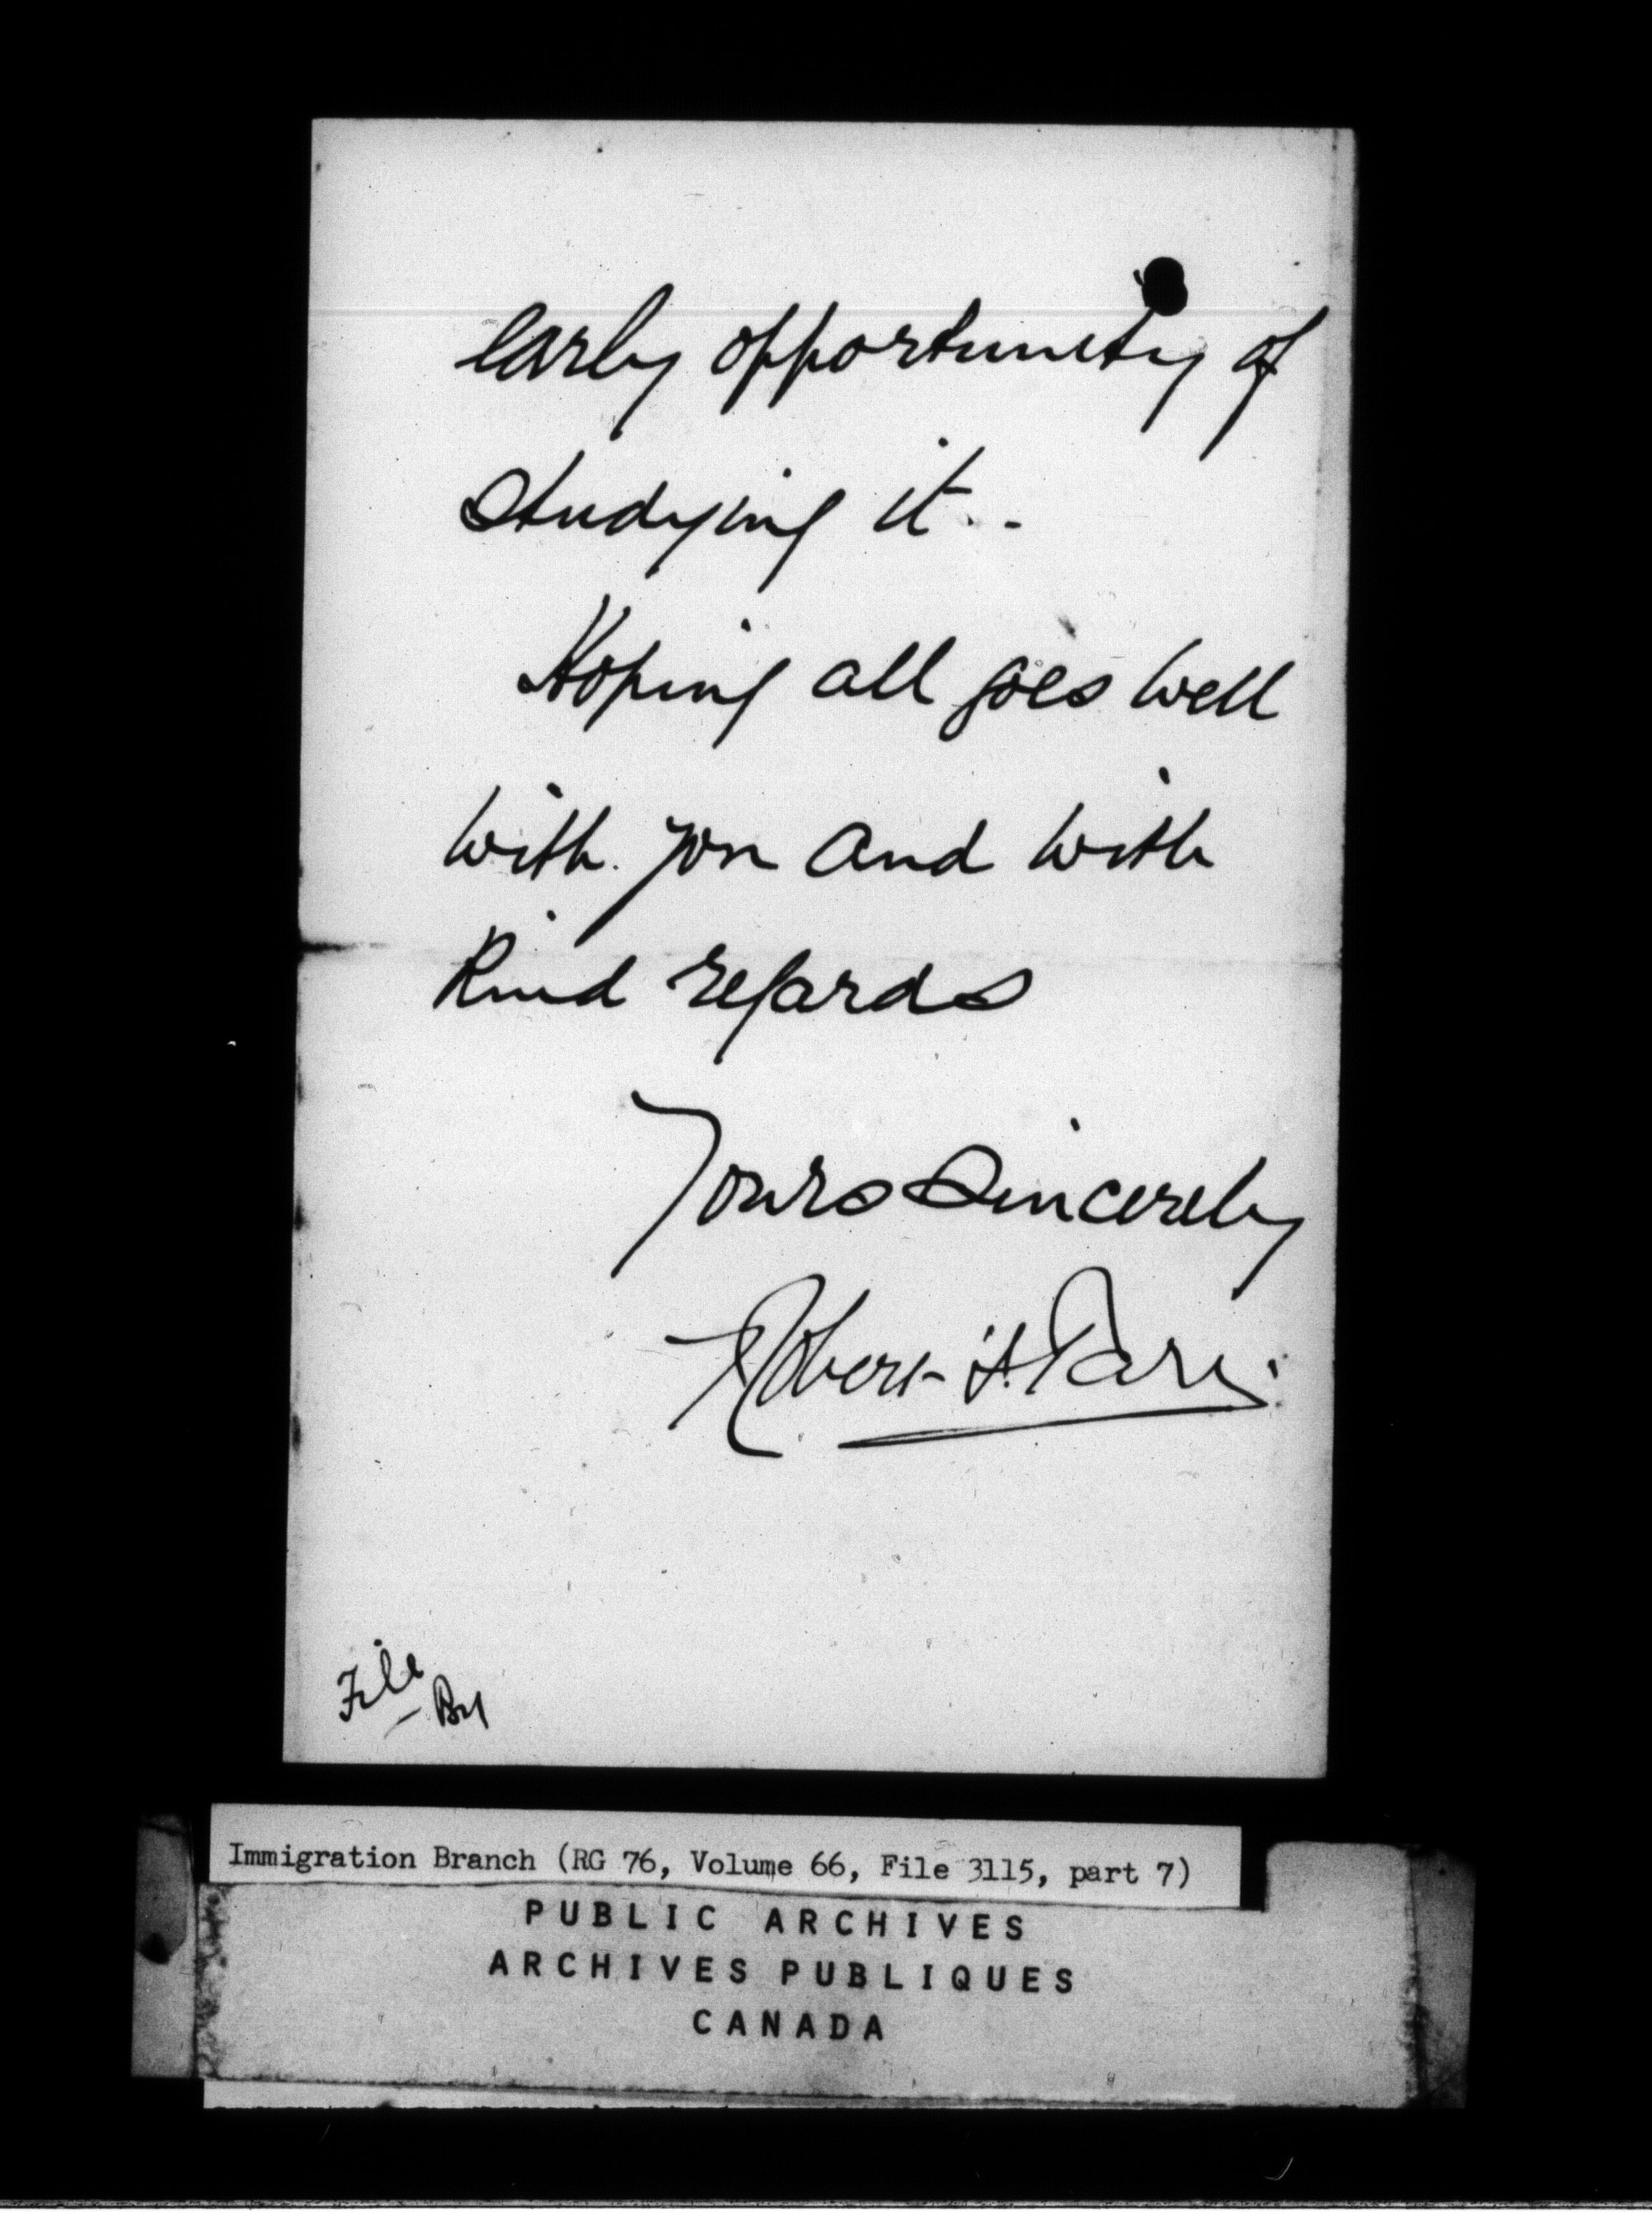 early opportunity of
studying it. -
Hoping all goes well
with you and with
Kind regards
Yours Sincerely
Robert
File
Immigration Branch (RG 76, Volume 66, File 3115, part 7)
PUBLIC ARCHIVES
ARCHIVES PUBLIQUES
CANADA